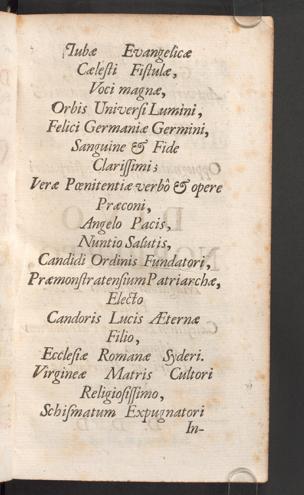 Tubæ Evangelicæ
Cælesti Fistulæ,
Voci magnæ,
Orbis Universi Lumini,
Felici Germaniæ Germini,
Sanguine & Fide
Clarissimi;
Veræ Pœnitentiæ verbô & opere
Præconi,
Angelo Pacis,
Nuntio Salutis,
Candidi Ordinis Fundatori,
Præmonstratensium Patriarchæ,
Electo
Candoris Lucis Æternæ
Filio,
Ecclesiæ Romanæ Syderi.
Virgineæ Matris Cultori
Religiosissimo,
Schismatum Expugnatori
In-